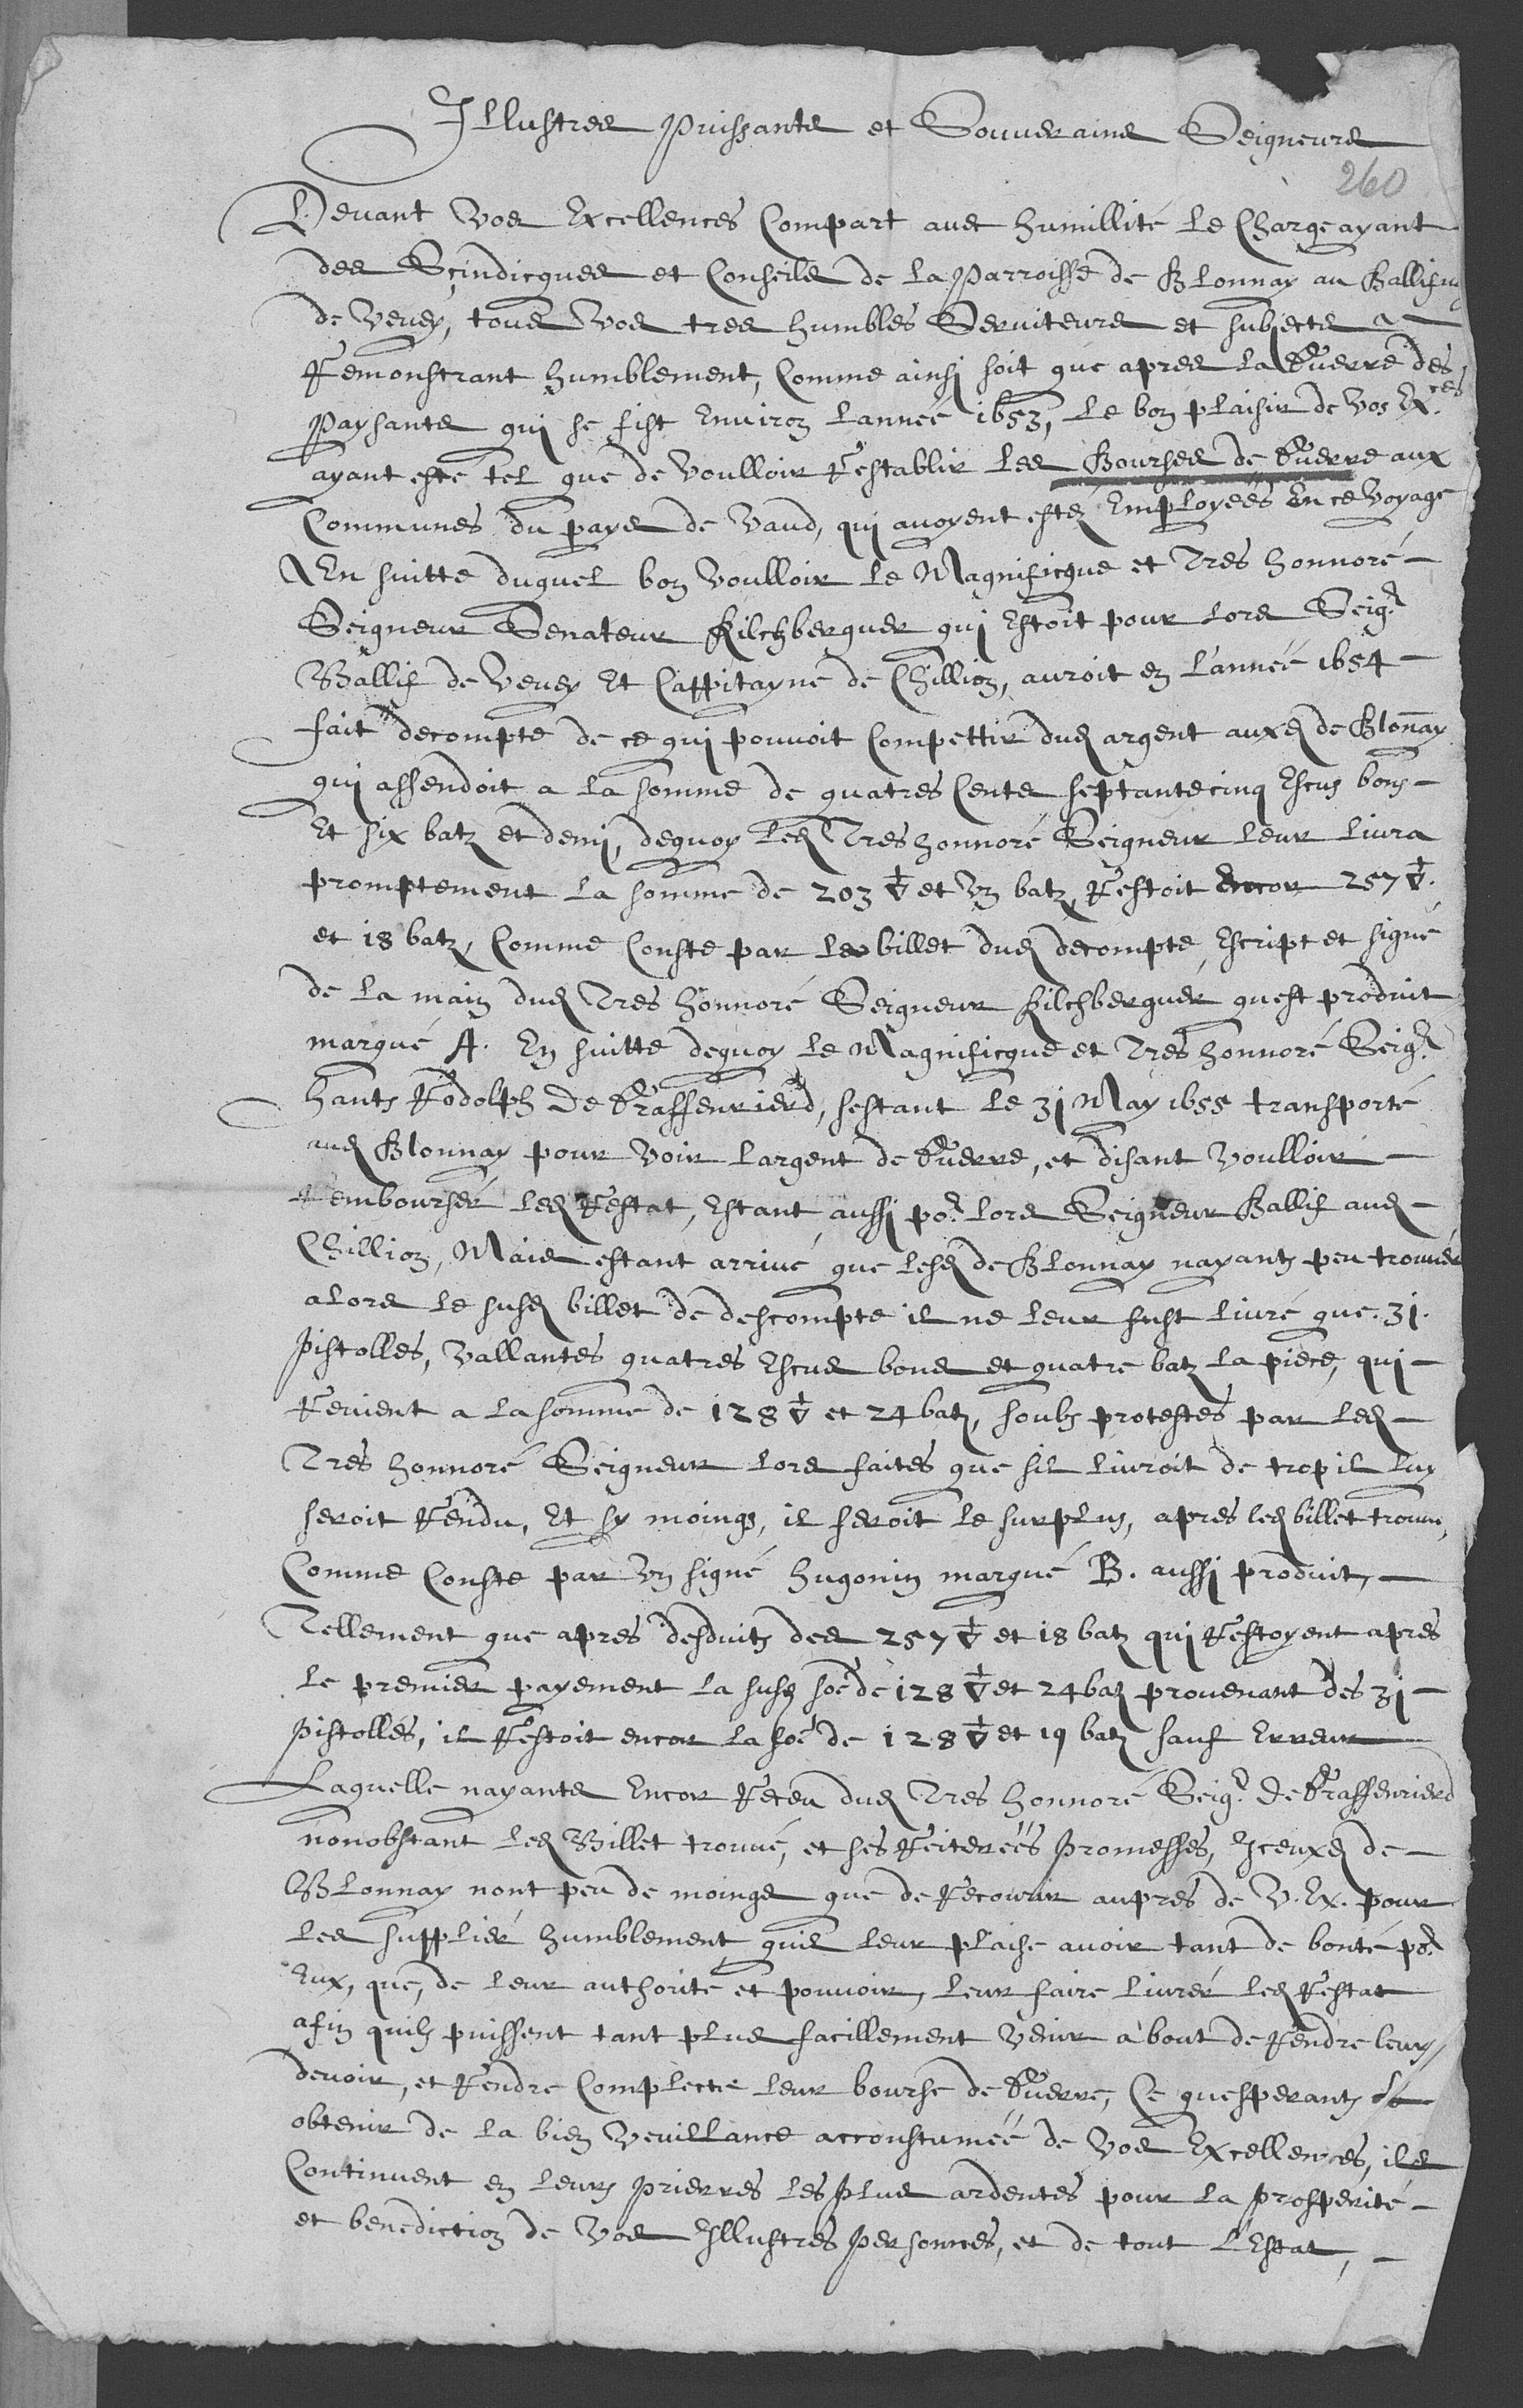 Illustres Puissants et Souverains Seigneurs
260
Devant Vos Excellences Compart avec humillité le Chargeayant
des Scindicques et Conseils de la Parroisse de Blonnay au Ballifvage
de Vevey, tous Vos tres humbles Serviteurs et subjects
Remonstrant humblement, Comme ainsi soit que apres la Guerre des
Paysants qui se fist Environ lannéé 1653, le bon plaisir de Vos Ex.ces
ayant esté tel que de voulloir Restablir les Bourses de Guerre aux
Communes du pays de Vaud, qui avoyent estez Employéés En ce Voyage
En suitte duquel bon voulloir le Magnificque et Tres honnoré
Seigneur Senateur Kilchberguer qui Estoit pour lors Seigr
Ballif de Vevey Et Cappitayne de Chillion, auroit en l'annéé 1654
fait decompte de ce qui pouvoit Compettir dud argent auxd de Blonnay
qui assendoit a la somme de quatres Cents septante cinq Escus bons
Et six batz et demj, dequoy led Tres honnoré Seigneur leur livra
promptement la somme de 203 ▽ et Un batz, Restoit Encor 257 ▽.
et 18 batz, Comme Conste par le billet dud decompte, Escript et signé
de la main dud Tres honnoré Seigneur Kilchberguer quest produit
marqué A. En suitte dequoy le Magnificque et Tres honnoré Seigr
hants Rodolph De Graffenrierd, sestant le 31 May 1655 transporté
aud Blonnay pour voir largent de Guerre, et disant voulloir
Rembourser led Restat, Estant aussi por lors Seigneur Ballif aud
Chillion, Mais estant arrivé que lesd de Blonnay nayants peu trouver
alors le susd billet de descompte il ne leur fust livré que. 31.
Pistolles, vallantes quatres Escus bons et quatre batz la piece, qui
Revient a la somme de 128 ▽ et 24 batz, soubs protestes par led
Tres honnoré Seigneur lors faites que sil livroit de trop il luy
seroit Rendu, Et sy moings, il feroit le surplus, apres led billet trouvé,
Comme Conste par Un signé hugonin marqué B. aussi produit,
Tellement que apres desduits des 257 ▽ et 18 batz qui Restoyent apres
le premier payement la susd soe de 128 ▽ et 24 batz provenant des 31
Pistolles, il Restoit encor la soe de 128 ▽ et 19 batz sauf Erreur
Laquelle nayants Encor Receu dud Tres honnoré Seigr De Graffenrierd
nonobstant led Billet trouvé, et ses Reiteréés Promesses, Iceuxd de
Blonnay nont peu de moings que de Recourir aupres de V. Ex. pour
les supplier humblement quil leur plaise avoir tant de bonté por
Eux, que, de leur authorité et pouvoir, leur faire livrer led Restat
afin quils puissent tant plus facillement venir à bout de Rendre leurs
devoir, et Rendre Complecte leur bourse de Guerre, Ce quesperants
obtenir de la bien veuillance accoustuméé de Vos Excellences, ils
Continuent en leurs prierres les plus ardentes pour la prosperité
et benediction de Vos Illustres Personnes, et de tout l'Estat,